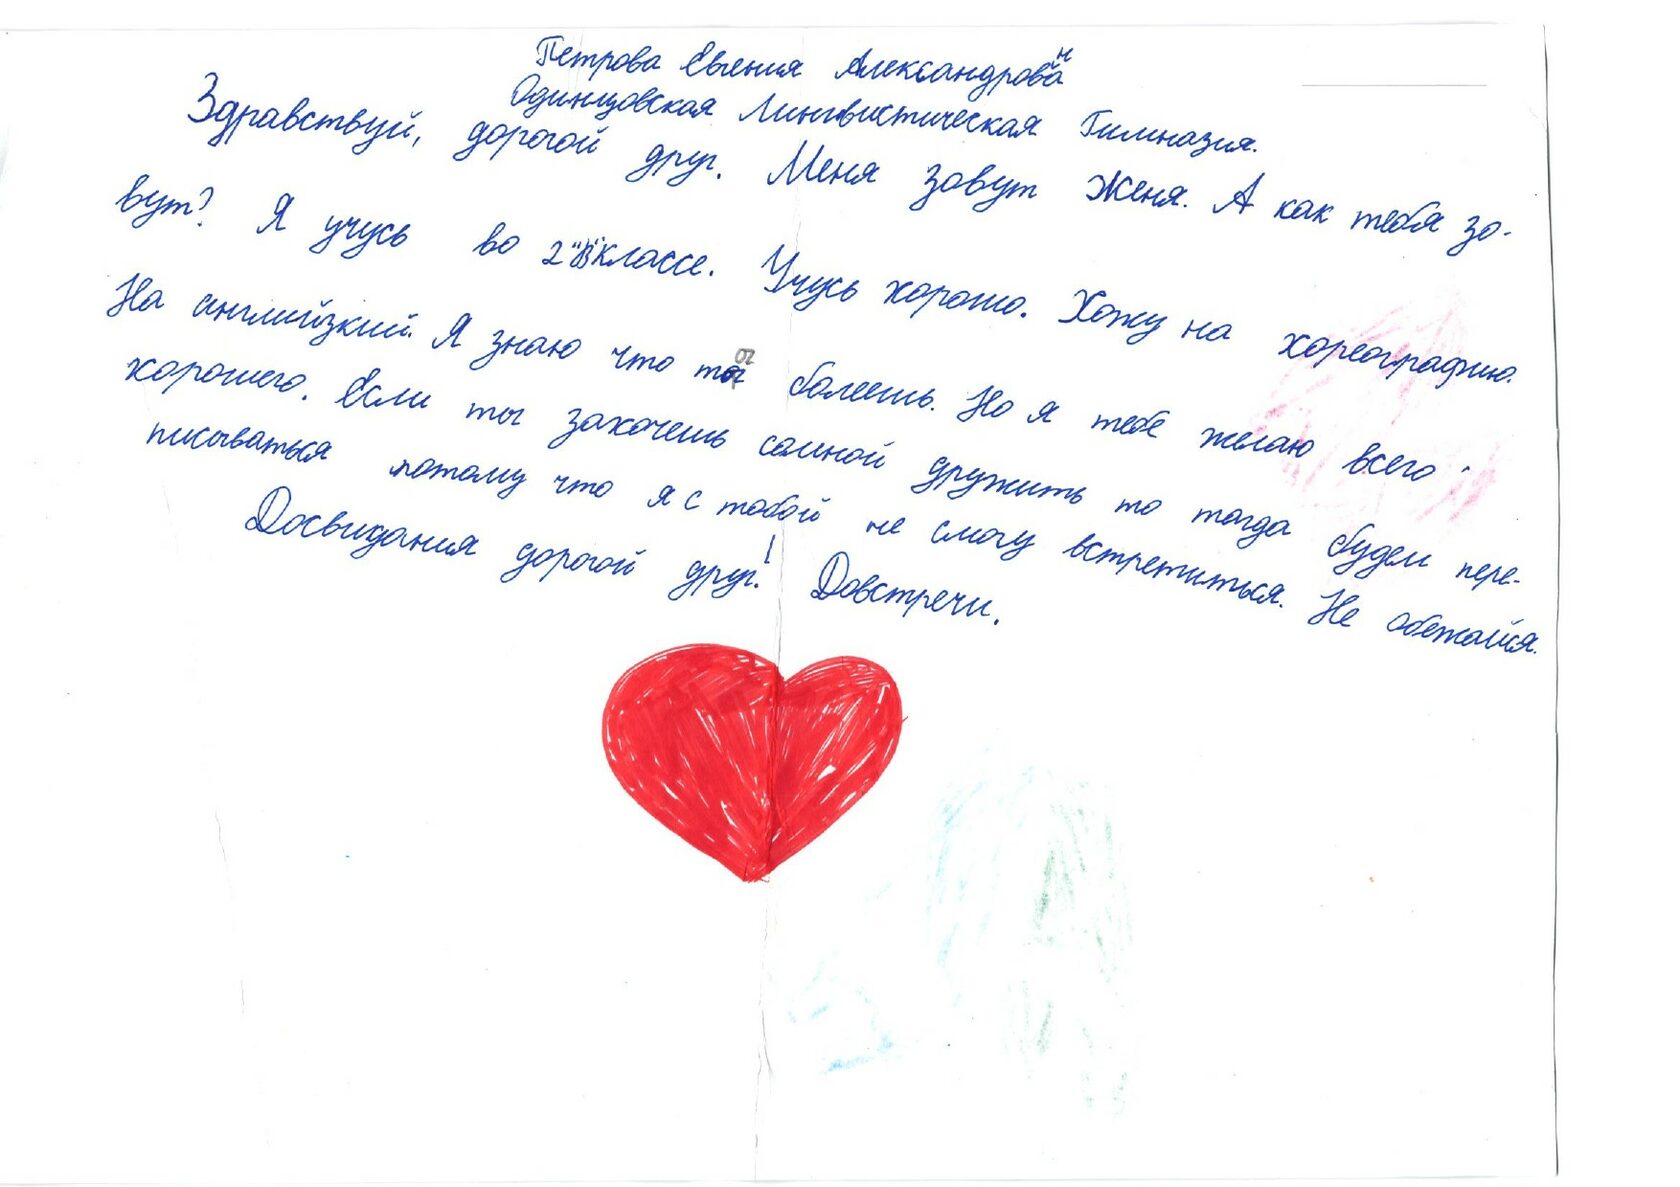 Петрова Евгения Александровна
Одинцовская Лингвистическая Гимназия.
Здравствуй, дорогой друг. Меня зовут Женя. А как тебя зо-
вут? Я учусь во 2"В"классе. Учусь хорошо. Хожу на хореографию.
На английзкий. Я знаю что ты болеешь. Но я тебе желаю всего
хорошего. Если ты захочешь самной дружить то тогда будем пере-
писываться потому что я с тобой не смогу встретиться. Не обежайся.
Досвидания дорогой друг! Довстречи.